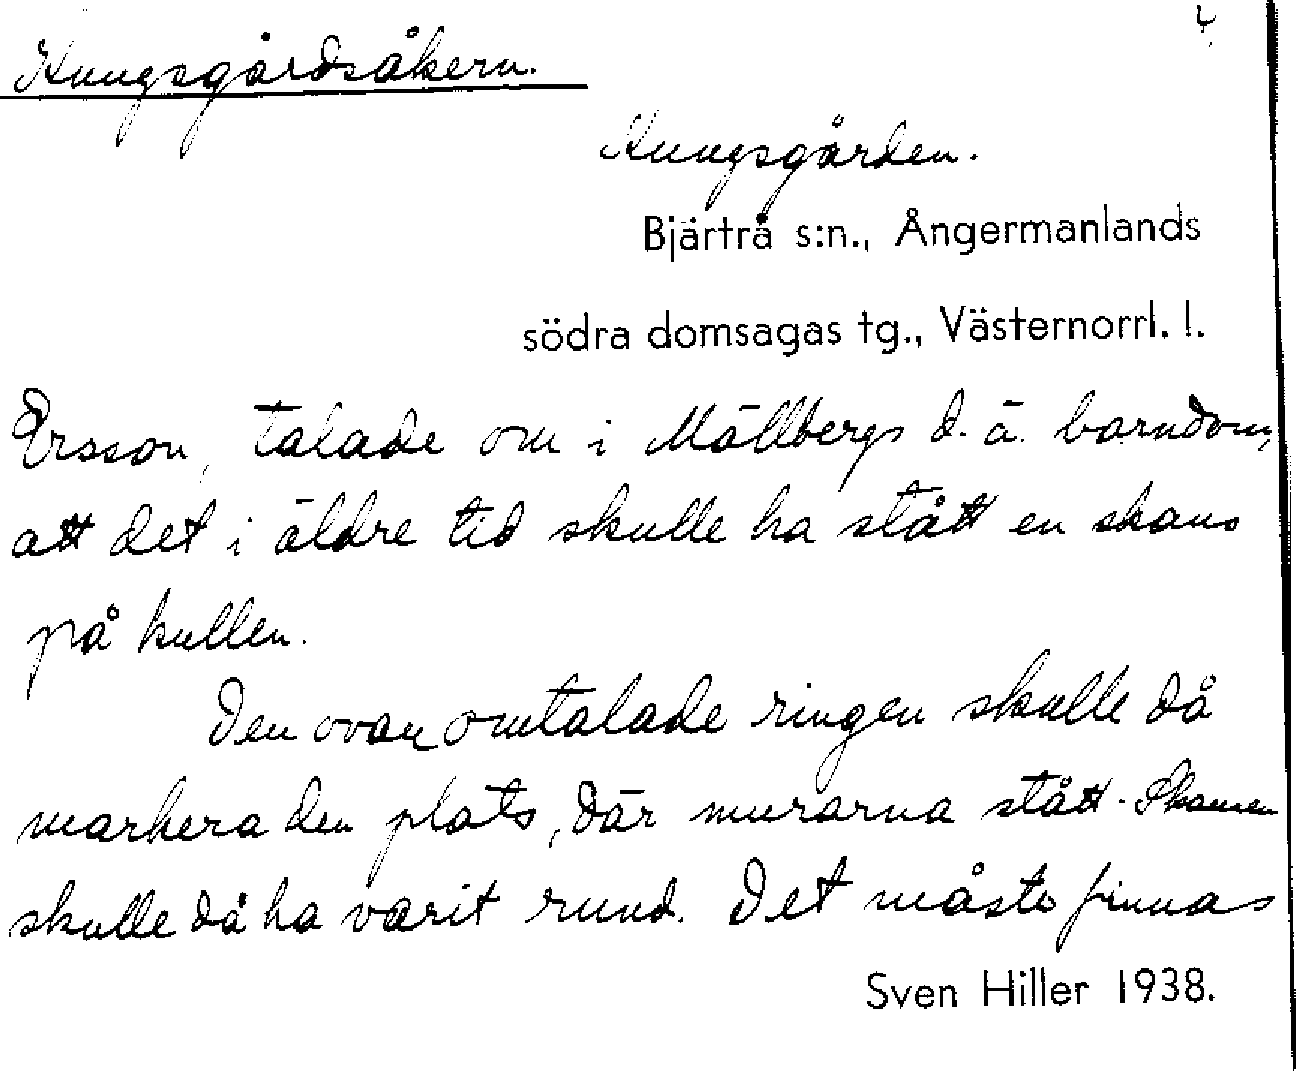 4.
Kungsgårdsåkern.
Kungsgården.
Bjärtrå s:n., Ångermanlands
södra domsagas tg., Västernorrl. l.
Ersson, talade om i Mällbergs d. ä. barndom,
att det i äldre tid skulle ha stått en skans
på kullen.
Den ovan omtalade ringen skulle då
markera den plats, där murarna stått. Skansen
skulle då ha varit rund. Det måste finnas
Sven Hiller 1938.